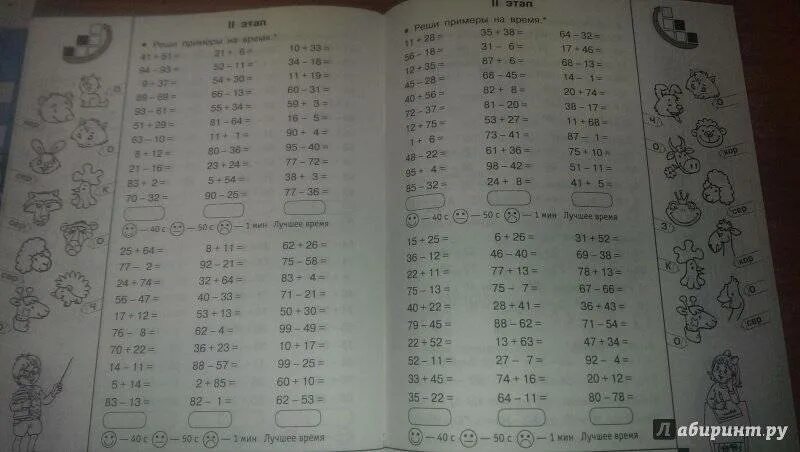 II этап
• Реши примеры на время.*
41 + 51 = 21 + 6 = 10 + 33 =
94 − 93 = 52 − 11 = 34 − 18 =
9 + 37 = 54 + 30 = 11 + 19 =
89 − 69 = 66 − 13 = 60 − 31 =
93 − 61 = 55 + 34 = 59 + 3 =
51 + 29 = 81 − 64 = 16 − 5 =
63 − 10 = 11 + 1 = 90 + 4 =
8 + 12 = 80 − 36 = 95 − 40 =
21 − 16 = 23 + 24 = 77 − 72 =
83 + 2 = 5 + 54 = 38 + 3 =
70 − 32 = 90 − 25 = 77 − 36 =
— 40 с — 50 с — 1 мин Лучшее время
25 + 64 = 8 + 11 = 62 + 26 =
77 − 2 = 92 − 21 = 75 − 58 =
24 + 74 = 32 + 64 = 83 + 4 =
56 − 47 = 40 − 33 = 71 − 21 =
17 + 12 = 53 + 13 = 50 + 30 =
76 − 8 = 62 − 4 = 99 − 49 =
70 + 22 = 36 + 23 = 10 + 17 =
14 − 11 = 88 − 57 = 99 − 25 =
5 + 14 = 2 + 85 = 60 + 10 =
83 − 13 = 82 − 1 = 62 − 53 =
— 40 с — 50 с — 1 мин Лучшее время
II этап
• Реши примеры на время.*
11 + 28 = 35 + 38 = 64 − 32 =
56 − 18 = 31 − 6 = 17 + 46 =
12 + 35 = 87 + 6 = 68 − 13 =
45 − 28 = 68 − 45 = 14 − 1 =
40 + 56 = 82 + 8 = 20 + 74 =
72 − 37 = 81 − 20 = 38 − 17 =
12 + 75 = 53 + 27 = 11 + 68 =
1 + 6 = 73 − 41 = 87 − 1 =
48 − 22 = 61 + 36 = 75 + 10 =
95 + 4 = 98 − 42 = 51 − 11 =
85 − 32 = 24 + 8 = 41 + 5 =
— 40 с — 50 с — 1 мин Лучшее время
15 + 25 = 6 + 26 = 31 + 52 =
36 − 12 = 46 − 40 = 69 − 38 =
22 + 11 = 77 + 13 = 78 + 13 =
75 − 13 = 75 − 7 = 67 − 66 =
40 + 22 = 28 + 41 = 36 + 43 =
79 − 45 = 88 − 62 = 71 − 54 =
22 + 52 = 13 + 63 = 47 + 34 =
52 − 11 = 27 − 7 = 92 − 4 =
33 + 45 = 74 + 16 = 20 + 12 =
35 − 22 = 64 − 11 = 80 − 78 =
— 40 с — 50 с — 1 мин Лучшее время
Лабиринт.ру